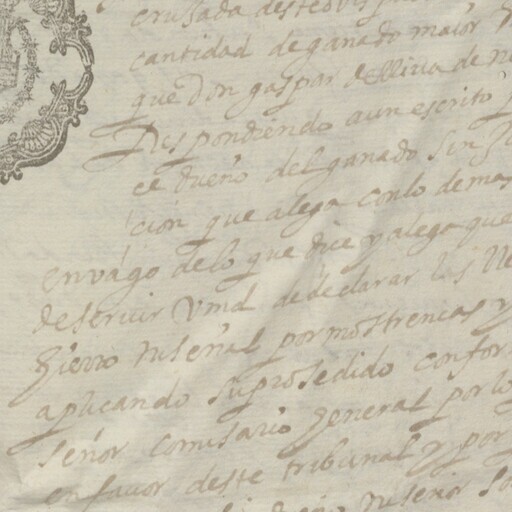 crusada deste obispado
cantidad de ganado maior
que Don gaspar de
Respondiendo a un escrito
ce dueño del ganado sin
ción que alega con lo demas
en vago de lo que dice y alega que
de seruir Vmd de declarar las
hierro ni señal por mostrencas y
aplicando su prosedido confor
señor comisario general por lo
en fauor deste tribunal y por
ni señor